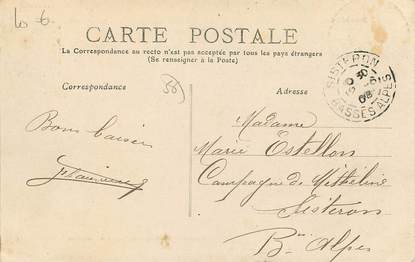 CARTE POSTALE
La Correspondance au recto n'est pas acceptée par tous les pays étrangers
(Se renseigner à la Poste)
Correspondance
Adresse
SISTERON
BASSES ALPES
Bons baisers
Madame
Marie Estellon
Campagne de
Sisteron
Bses Alpes